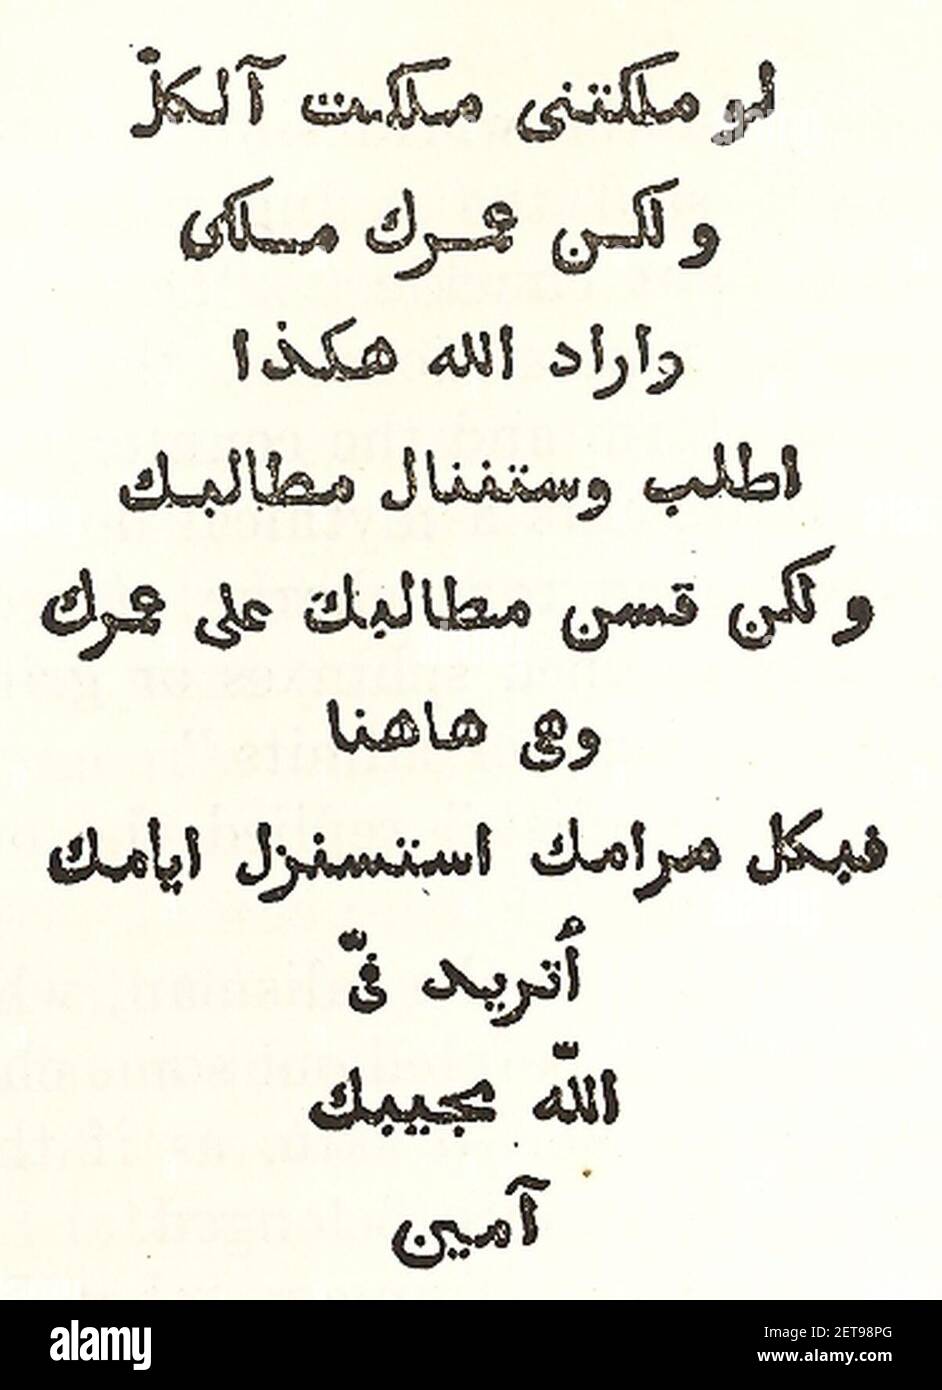 لو ملكتنى ملكت آلكلّ
ولكن عمرك ملكى
واراد الله هكذا
اطلب وستفنال مطالبك
ولكن قسن مطالبك على عمرك
وهى هاهنا
فبكل مرامك استسفزل ايامك
أتريد فىّ
اللّه مجيبك
آمين
alamy
Image ID: 2ET98PG
www.alamy.com